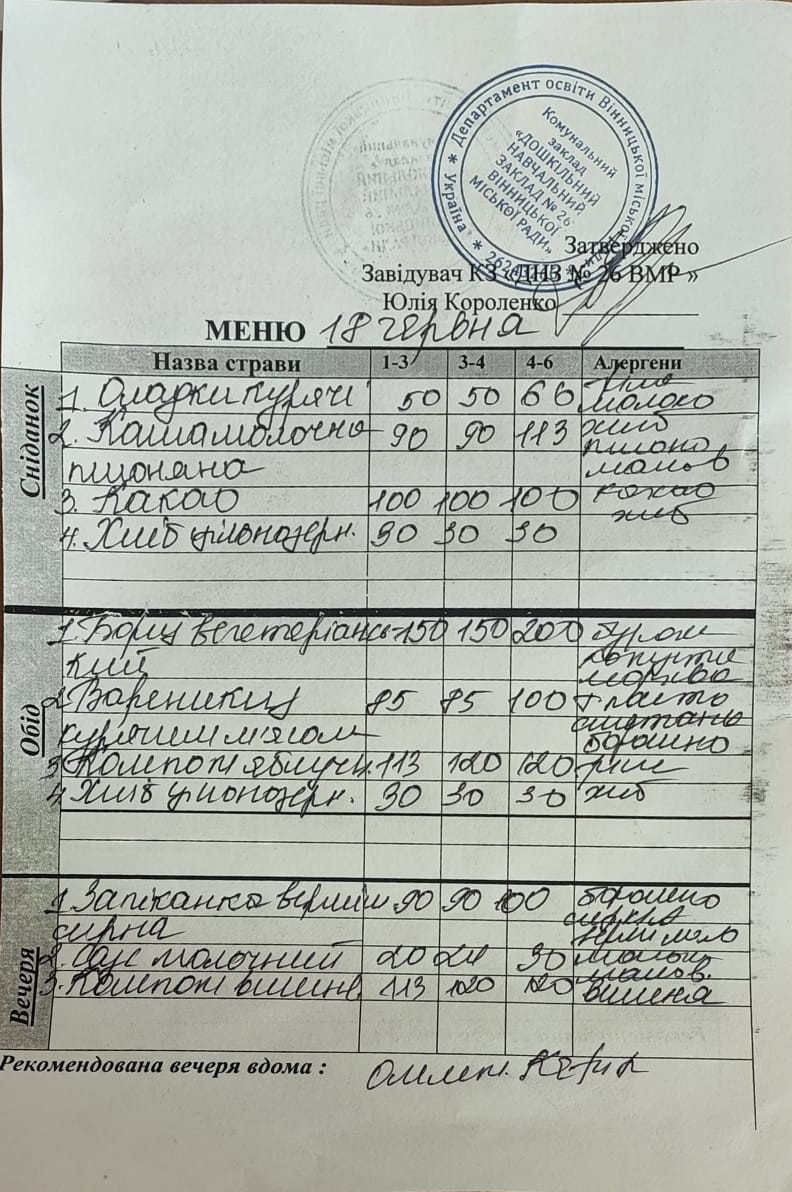 Департамент освіти Вінницької міської
Україна
Комунальний
заклад
«ДОШКІЛЬНИЙ
НАВЧАЛЬНИЙ
ЗАКЛАД № 26
ВІННИЦЬКОЇ
МІСЬКОЇ РАДИ»
Затверджено
Завідувач КЗ «ДНЗ № 26 ВМР »
Юлія Короленко
МЕНЮ 18 червня
Назва страви 1-3 3-4 4-6 Алергени
Сніданок
1. Оладки курячі 50 50 66
молоко
2. Каша молочна 90 90 113 хліб
пшоняна пшоно
3. Какао 100 100 100 какао
4. Хліб цільнозерн. 30 30 30 хліб
Обід
1. Борщ вегетеріансь 150 150 200 буряк
кий капуста
морква
2. Вареники з 85 85 100 сметана
курячим мясом борошно
3. Компот яблучн. 113 120 120
4. Хліб цільнозерн. 30 30 30 хліб
Вечеря
1. Запіканка вермiш 90 90 100 борошно
сирна
2. Соус молочний 20 24 30 молоко
3. Компот вишнев. 113 120 120 вишня
Рекомендована вечеря вдома : Омлет. Кефір